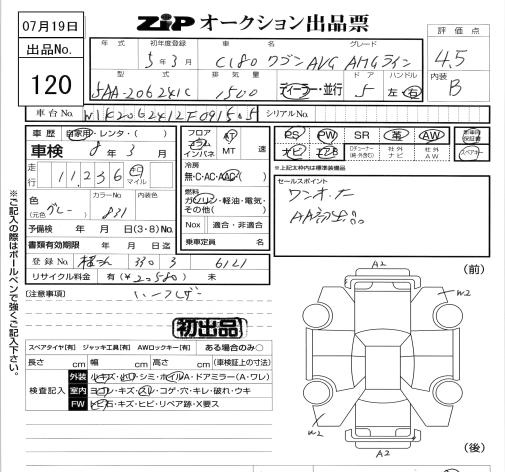 07月19日
ZiP オークション出品票
出品No.
120
年式 初年度登録 車名 グレード
5年3月 C180 ワゴン AVG AMGライン
評価点
4.5
型式 排気量 ドア ハンドル
5AA-206241C 1500 ディーラー・並行 5 左・右
内装
B
車台No. W1K2062412F091505 シリアルNo.
車歴 自家用・レンタ・( )
車検 8年3月
走行 11,236 km マイル
色 (元色) グレー カラーNo. 831 内装色
予備検 年 月 日(3・8)No.
書類有効期限 年 月 日迄
登録No. 330 3 6121
リサイクル料金 有(¥20580) 未
フロア コラム インパネ AT MT 速
冷房 無・C・AC・AAC
燃料 ガソリン・軽油・電気・その他( )
Nox 適合・非適合
乗車定員 名
PS PW SR 革 AW 新車時保証書
ナビ エアB 社外ナビ 社外AW スペアキー
※上記太枠内は標準装備品
セールスポイント
ワンオーナー
AA初出品
[注意事項]
初出品
スペアタイヤ[有] ジャッキ工具[有] AWロックキー[有] ある場合のみ○
長さ cm 幅 cm 高さ cm (車検証上の寸法)
検査記入
外装 小キズ・小凹・シミ・ホイルA・ドアミラー(A・ワレ)
室内 ヨゴレ・キズ・スレ・コゲ・穴・キレ・破れ・ウキ
FW トビ石・キズ・ヒビ・リペア跡・X要ス
※ご記入の際はボールペンで強くご記入下さい。
A2
(前)
W2
W2
A2
(後)